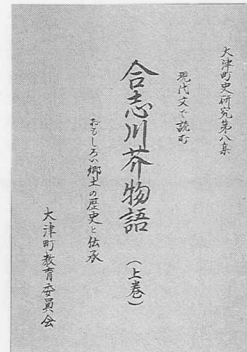 大津町史研究第八集
現代文で読む
合志川芥物語（上巻）
おもしろい郷土の歴史と伝承
大津町教育委員会